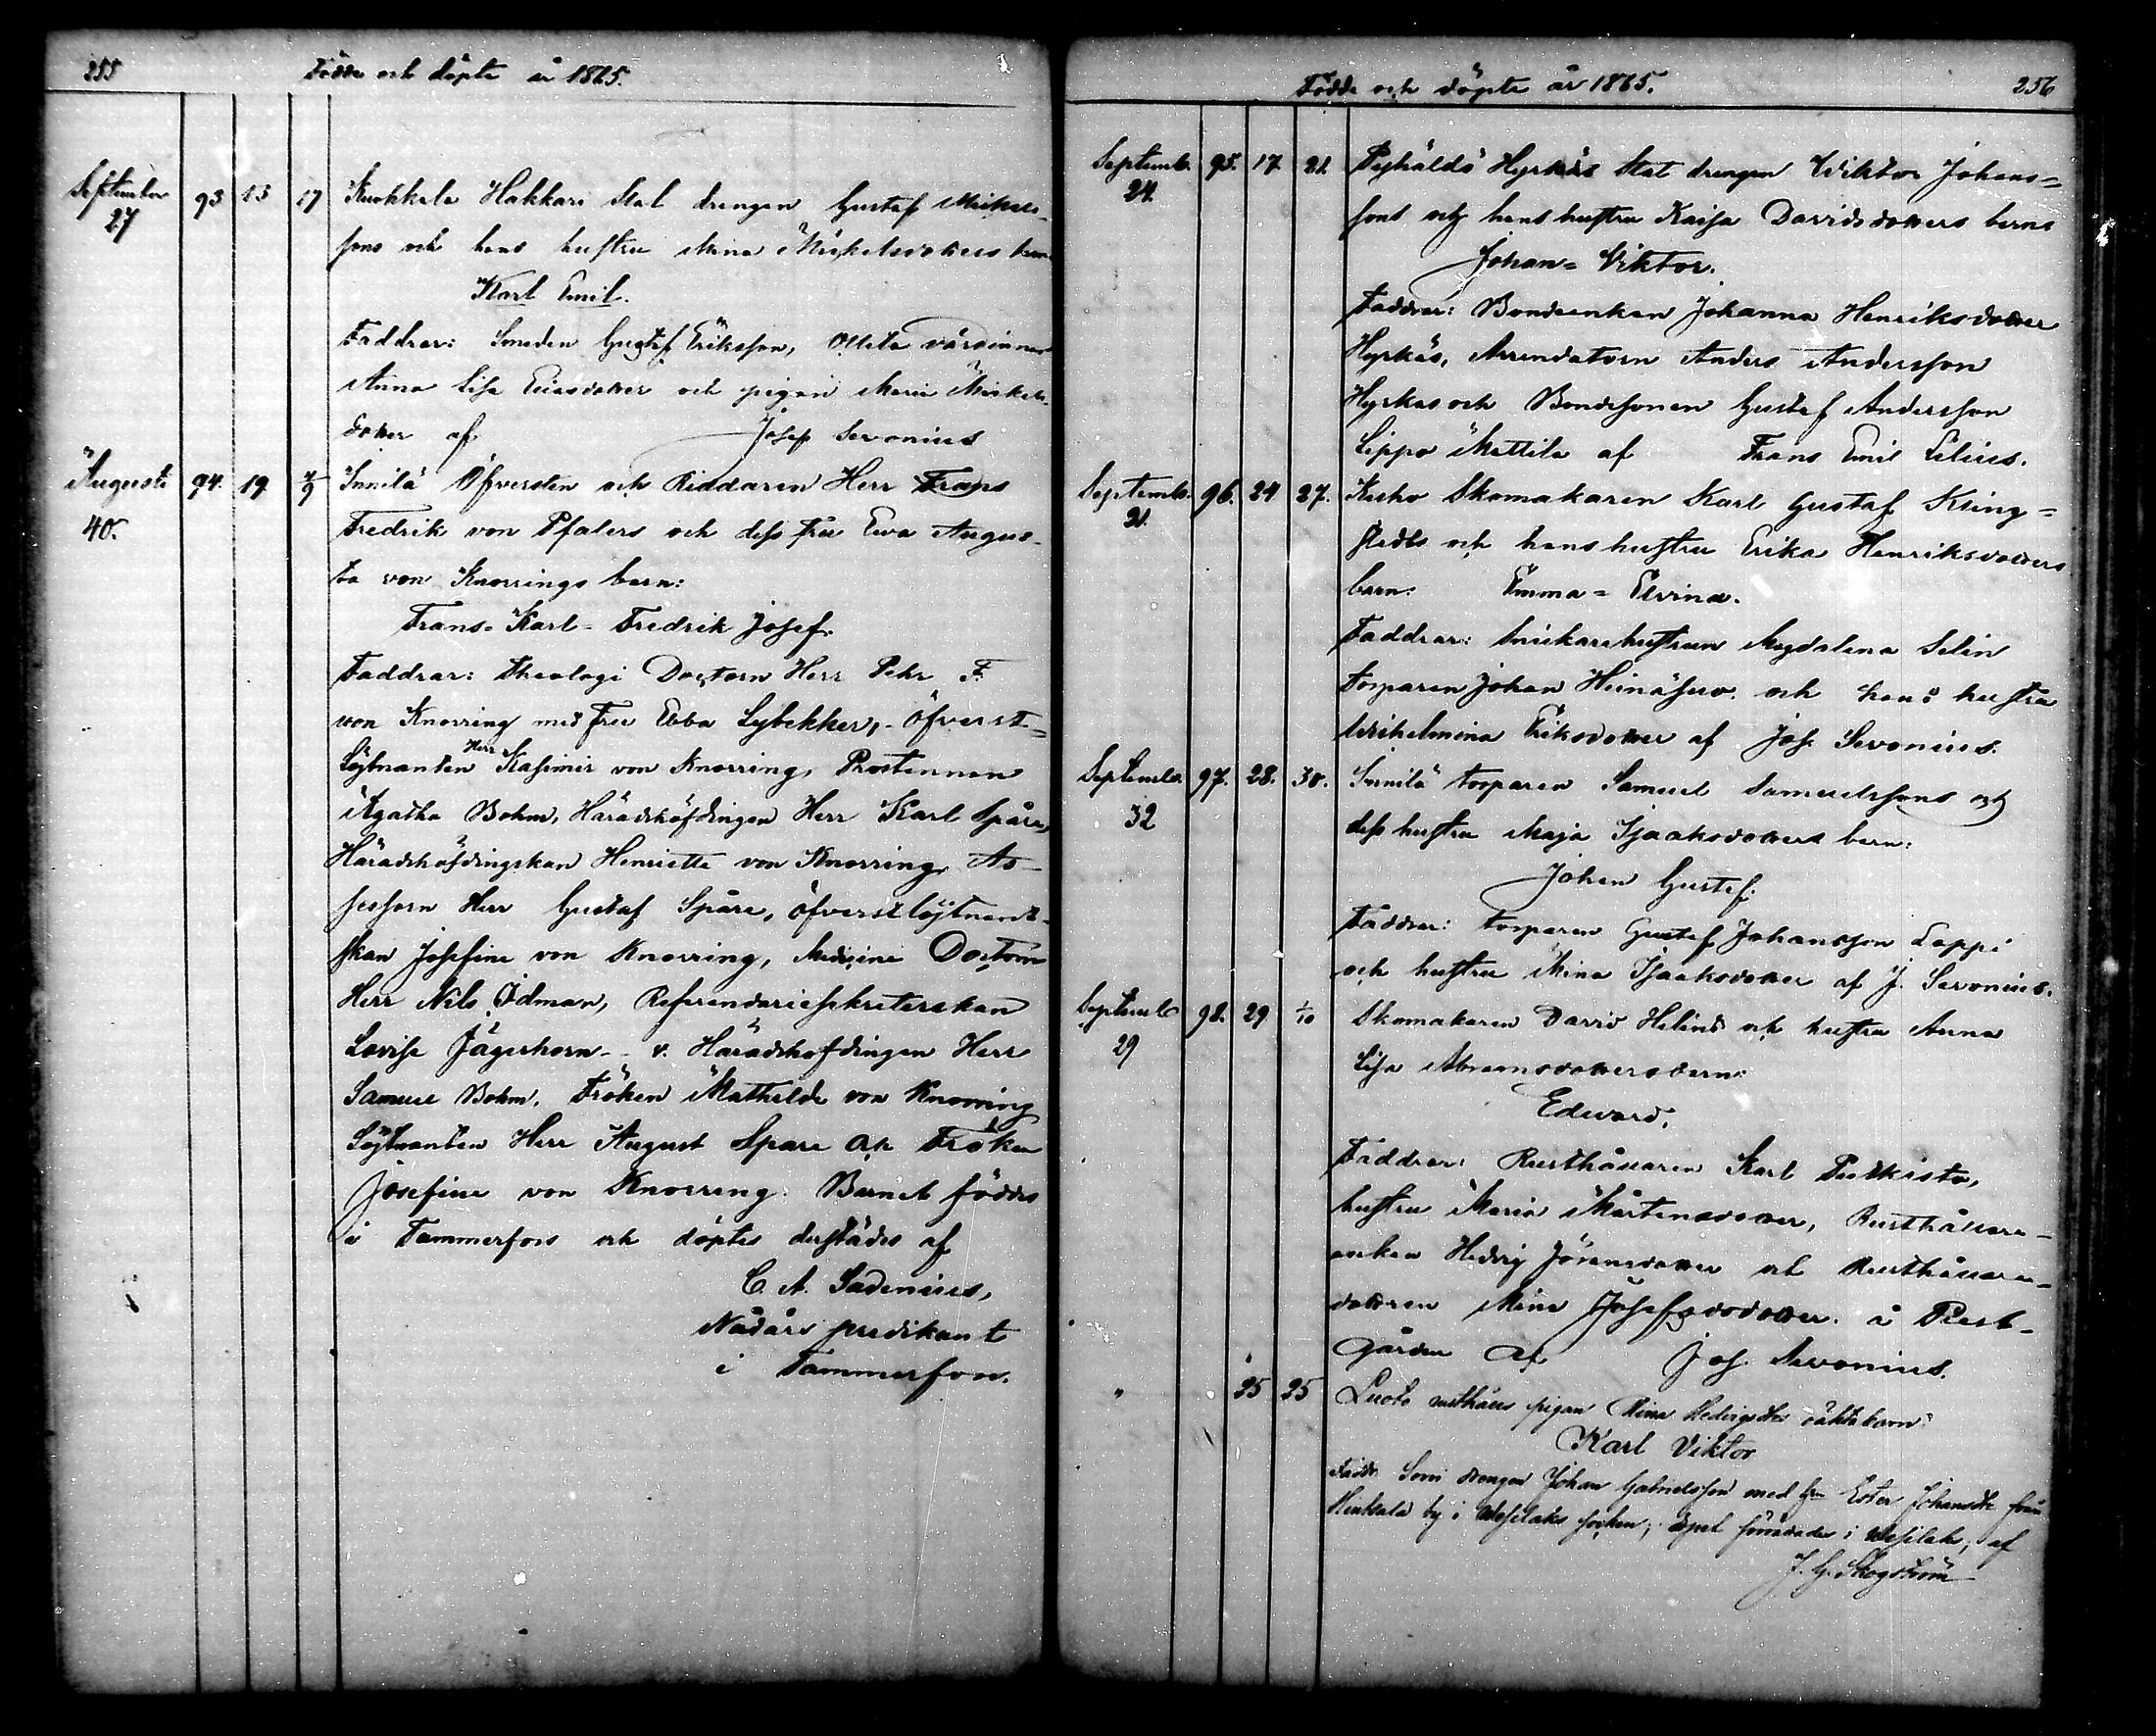 255 Födde och döpte år 1865.
September 93 13 17 Kuokkala Hakkari Stat drengen Gustaf Mickels-
27 sons och hans hustru Mina Mickelsdotters barn
Karl Emil.
Faddrar: Smeden Gustaf Eriksson, Ottila värdinnan
Anna Lisa Eriasdotter och pigan Maria Mickels-
dotter af Josef Sevonius
Augusti 94. 19 4/9 Innilä Öfversten och Riddaren Herr Frans
40. Fredrik von Pfalers och dess fru Ewa Augus-
ta von Knorrings barn:
Frans- Karl- Fredrik Josef.
Faddrar: Theologi Doctorn Herr Pehr F.
von Knorring med fru Ebba Lybekker, Öfverst-
Löjtnanten Herr Kasimir von Knorring, Prostinnan
Agatha Bohm, Häradshöfdingen Herr Karl Spåre,
Häradshöfdingskan Henriette von Knorring, As-
sessorn Herr Gustaf Spåre, öfverstlöjtnant-
skan Josefine von Knorring, Medicine Doctorn
Herr Nils Idman, Referendariesekreterskan
Lovisa Jägerhorn - v. Häradshöfdingen Herr
Samuel Bohm. Fröken Mathilde von Knorring
Löjtnanten Herr August Spare och Fröken
Josefine von Knorring. Barnet föddes
i Tammerfors och döptes derstädes af
C. A. Sadenius,
Nådårs predikant
i Tammerfors.
Födde och döpte år 1865. 256
Septemb. 95. 17 21. Pyhäldö Hyrkäs Stat drengen Wiktor Johans=
24. sons och hans hustru Kaisa Davidsdotters barn
Johan= Viktor.
Faddrar: Bondeenkan Johanna Henriksdotter
Hyrkäs, Arrendatorn Anders Andersson
Hyrkas och Bondesonen Gustaf Andersson
Lippo Mattila af Frans Emil Lilius.
Septemb. 96. 24 27. Kurho Skomakaren Karl Gustaf Kling=
21. stedts och hans hustru Erika Henriksdotters
barn: Emma= Elvina.
Faddrar: Snickarehustrun Magdalena Selin
torparen Johan Heinäsuo. och hans hustru
Wilhelmina Eriksdotter af Jos. Sevonius.
Septemb. 97. 28. 30. Innilä torparen Samuel Samuelssons och
32 dess hustru Maja Isaaksdotters barn:
Johan Gustaf.
Faddrar: torparen Gustaf Johansson Lappi
och hustru Mina Isaaksdotter af J. Sevonius.
Septemb. 98. 29 1/10 Skomakaren David Helins och hustru Anna
29 Lisa Abramsdotters barn:
Edward.
Faddrar: Rusthållaren Karl Pietkisto,
hustru Maria Mårtensdotter, Rusthållare-
enkan Hedvig Jöransdotter och Rusthållare-
dottren Mina Josefsdotter. i Prest-
gården af Jos. Sevonius.
" 25 25 Luoto rusthålls pigan Mina Hedvigsdtrs oäkta barn:
Karl Viktor
Faddr. Sorri drengen Johan Gabrielsson med hu Ester Johansdtr från
by i Wesilaks socken; döpet förrättades i Wesilaks, af
J. G. Skogström